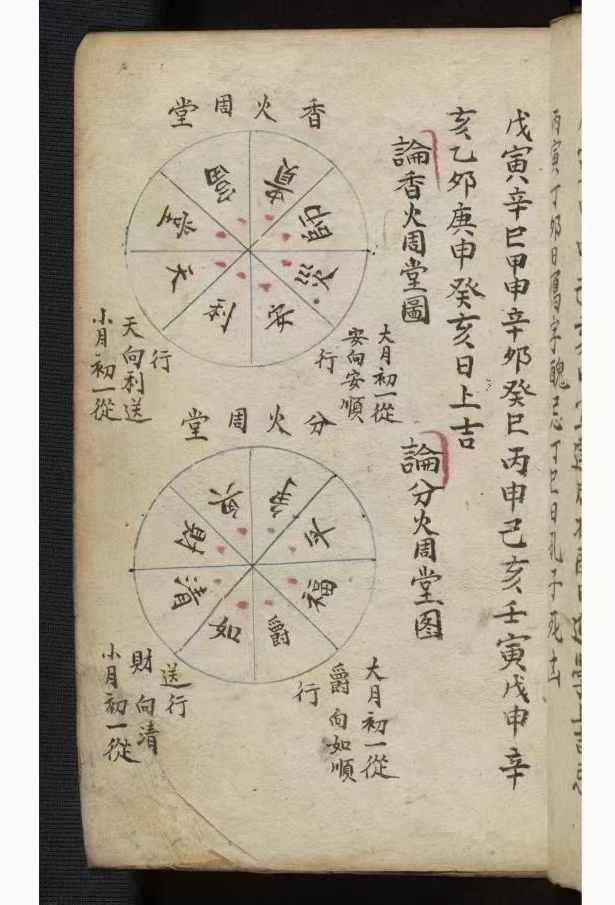 戊寅辛巳甲申辛卯癸巳丙申己亥壬寅戊申辛
亥乙卯庚申癸亥日上吉
論香火周堂圖
香火周堂
貴
師
災
安
天
堂
富
大月初一從
安向安順
行
行
天向利送
小月初一從
論分火周堂图
分火周堂
爭
平
福
爵
如
清
財
興
大月初一從
爵向如順
行
送行
財向清
小月初一從